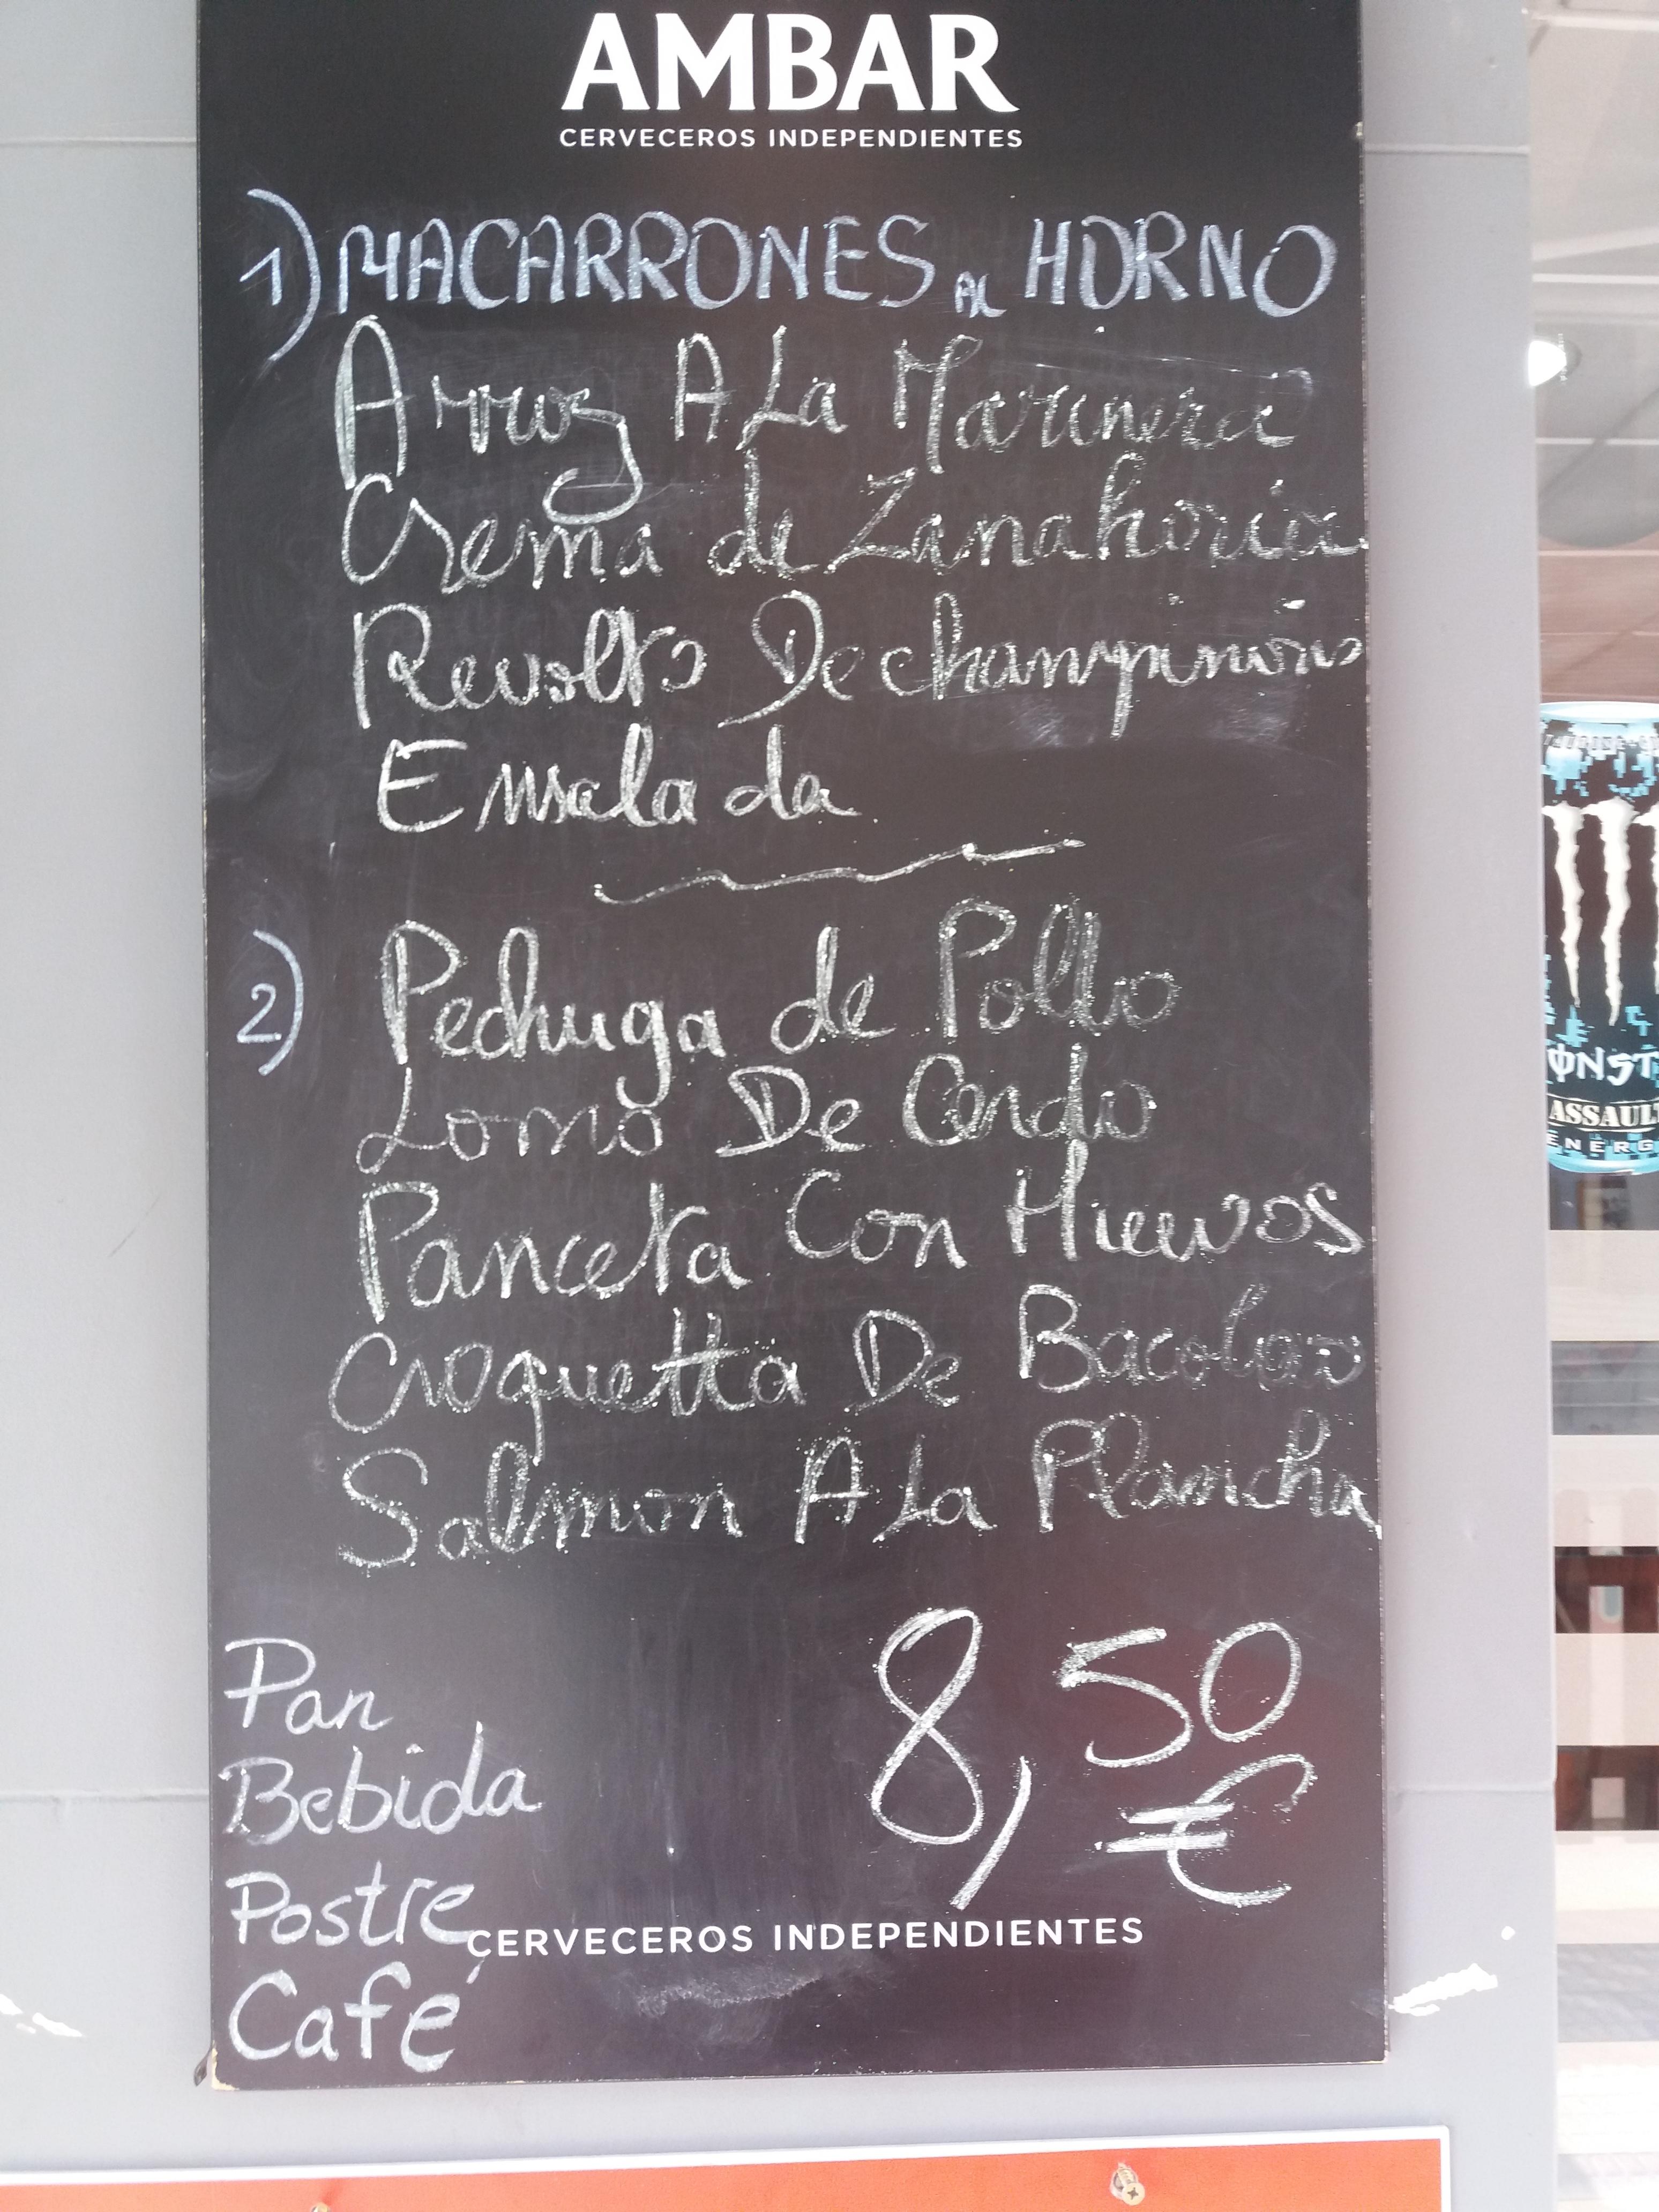 AMBAR
CERVECEROS INDEPENDIENTES
1) MACARRONES AL HORNO
Arroz A La Marinera
Crema de Zanahoria
Revolto De champiñons
Ensalada
2) Pechuga de Pollo
Lomo De Cerdo
Panceta Con Huevos
Croquetta De Bacolao
Salmon A La Plancha
Pan
Bebida
Postre
Café
8,50
€
CERVECEROS INDEPENDIENTES
ASSAULT
ENERG